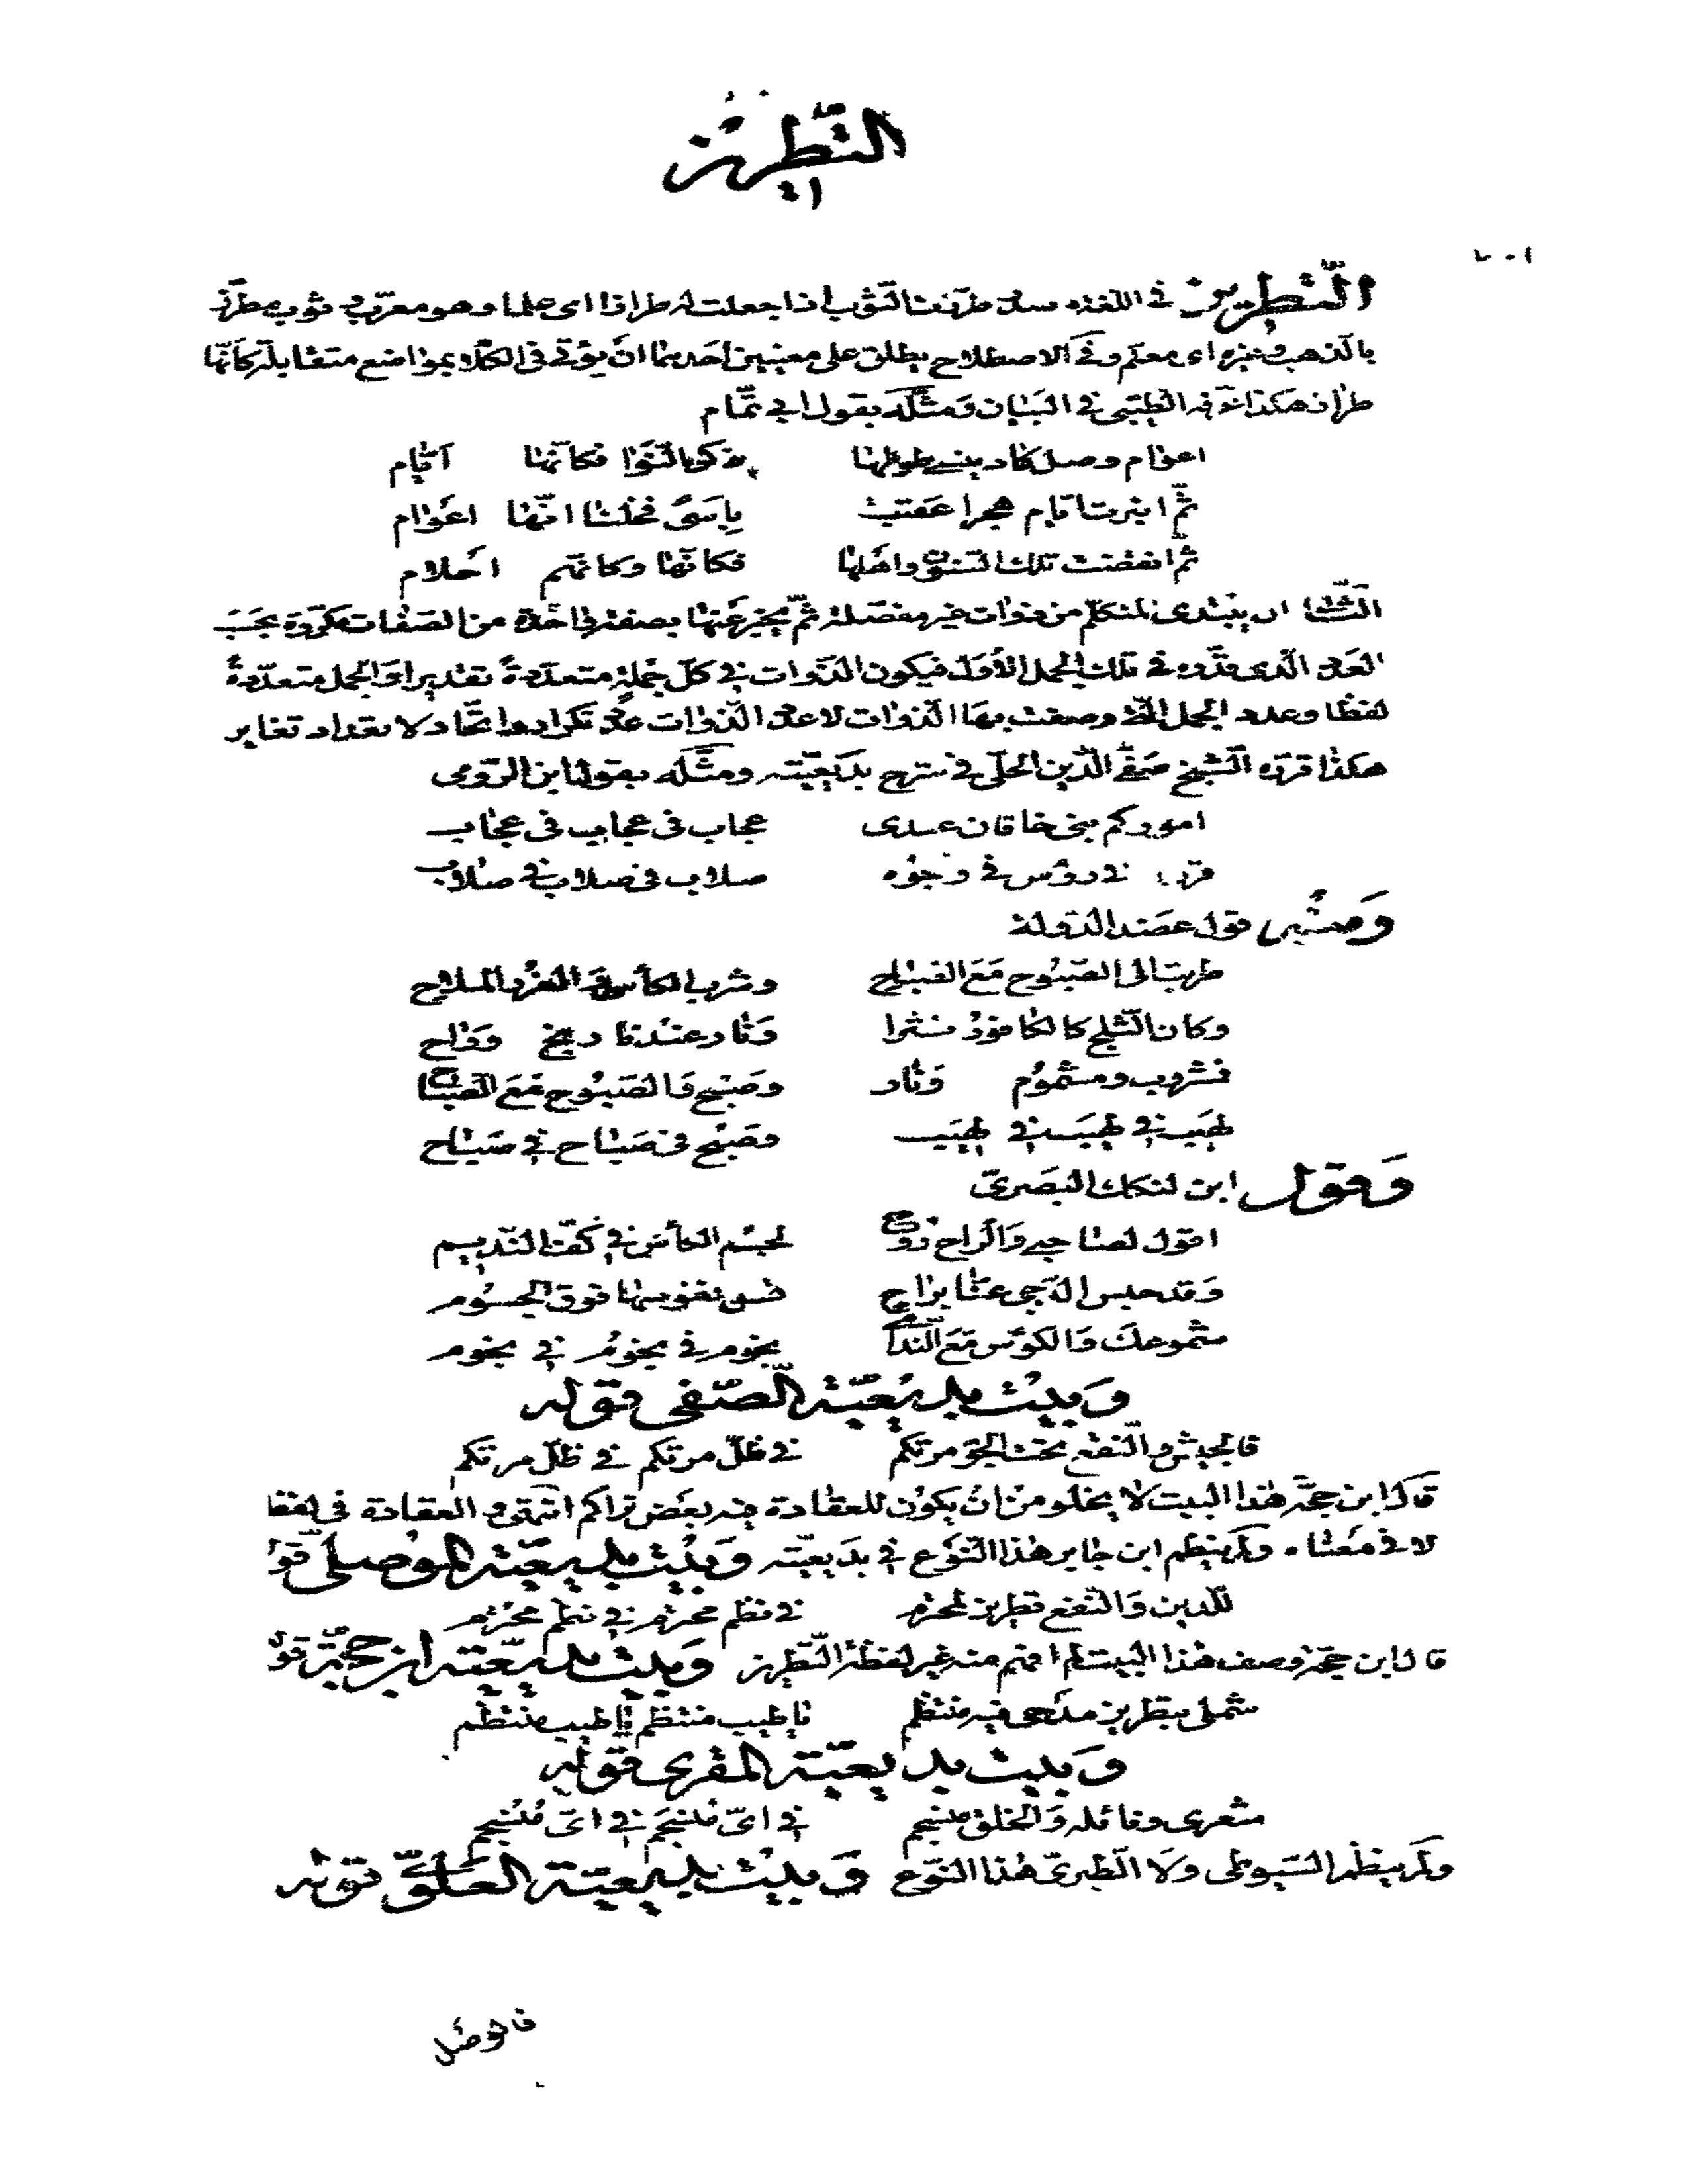 التطريز
التطريز في اللغة مصدر طرزت الثوب اذا جعلت له طرازا اى علما وهو معرّب وثوب مطرّز
بالذهب وغيره اى معلم وفي الاصطلاح يطلق على معنيين احدهما ان يؤتى في الكلام بمواضع متقابلة كانّها
طراز هكذا عرّفه الطيبى في التبيان ومثّله بقول ابي تمّام
اعوام وصل كاد ينسي طولها ذكر النوا فكانّها ايّام
ثمّ انبرت ايام هجر اعقبت باسىً فخلنا انّها اعوام
ثم انقضت تلك السنون واهلها فكانّها وكانّهم احلام
الثّانى ان يبتدى المتكلّم من ذوات غير مفصّلة ثمّ يخبر عنها بصفة واحدة من الصّفات مكرّرة بحسب
العدد الّذى قدّره في تلك الجمل الأول فيكون الذّوات في كلّ جملة متعدّدةً تقديرا والجمل متعدّدةً
لفظا وعدد الجمل الّتي وصفت بها الذوات لا عدد الذّوات عدد تكرار واتّحاد لا تعداد تغاير
هكذا قرّره الشيخ صفيّ الدّين الحلّى في شرح بديعيّته ومثّله بقول ابن الرّومى
اموركم بنى خاقان عندى عجاب في عجاب في عجاب
قرون في رؤس في وجوه صلاب في صلاب في صلاب
ومنه قول عضد الدولة
طربت الى الصّبوح مع الصّباح وشرب الكأس والغرر الملاح
وكان الثّلج كالكافور نثرا ونار عند نارنج وراح
فمشروب ومشموم ونار وصبح والصّبوح مع الصّباح
لهيب في لهيب في لهيب وصبح في صباح في صباح
وقول ابن لنكك البصرىّ
اقول لصاحبي والراح روح لجسم الكأس في كفّ النّديم
وقد حبس الدّجى عنّا براح نفوسها فوق الجسوم
شموعك والكؤس مع النّدامى نجوم في نجوم في نجوم
وبيت بديعيّة الصّفى قوله
فالجيش والنقع تحت الجوّ مرتكم في ظلّ مرتكم في ظلّ مرتكم
قال ابن حجّة هذا البيت لا يخلو من ان يكون للعقادة فيه بعض تراكم انتهى والعقادة في لفظه
لا في معناه ولم ينظم ابن جابر هذا النّوع في بديعيّته وبيت بديعيّة الموصلى قوله
للدين والنفع تطريز في نظم محترم في نظم محترم
قال ابن حجّة وصف هذا البيت لم افهم منه غير لفظة التّطريز وبيت بديعيّته ابن حجّة قوله
شملى بتطريز مدحى فيه منتظم ياطيب منتظم ياطيب منتظم
وبيت بديعيّة المقرى قوله
شعرى وقائله والخلق
ولم ينظم السّيوطى ولا الطّبرىّ هذا النّوع وبيت بديعيّة العلوىّ قوله